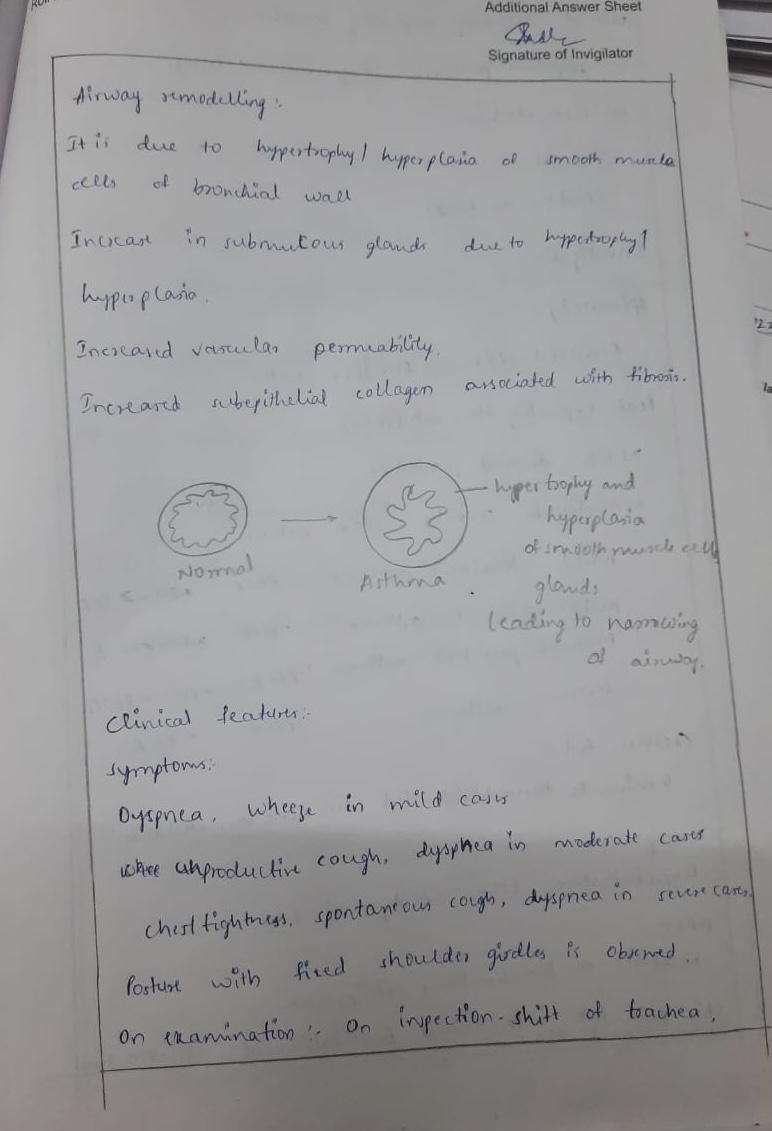 Additional Answer Sheet
Signature of Invigilator
Airway remodelling :-
It is due to hypertrophy / hyperplasia of smooth muscle
cells of bronchial wall
Increase in submucous glands due to hypertrophy /
hyperplasia.
Increased vascular permeability.
Increased subepithelial collagen associated with fibrosis.
Normal
Asthma
hypertrophy and
hyperplasia
of smooth muscle cells
glands
leading to narrowing
of airway.
Clinical features:-
Symptoms:-
Dyspnea, wheeze in mild cases
unproductive cough, dysphea in moderate cases
chest tightness, spontaneous cough, dyspnea in severe cases.
Posture with fixed shoulder girdles is observed.
On examination :- On inspection - shift of trachea,